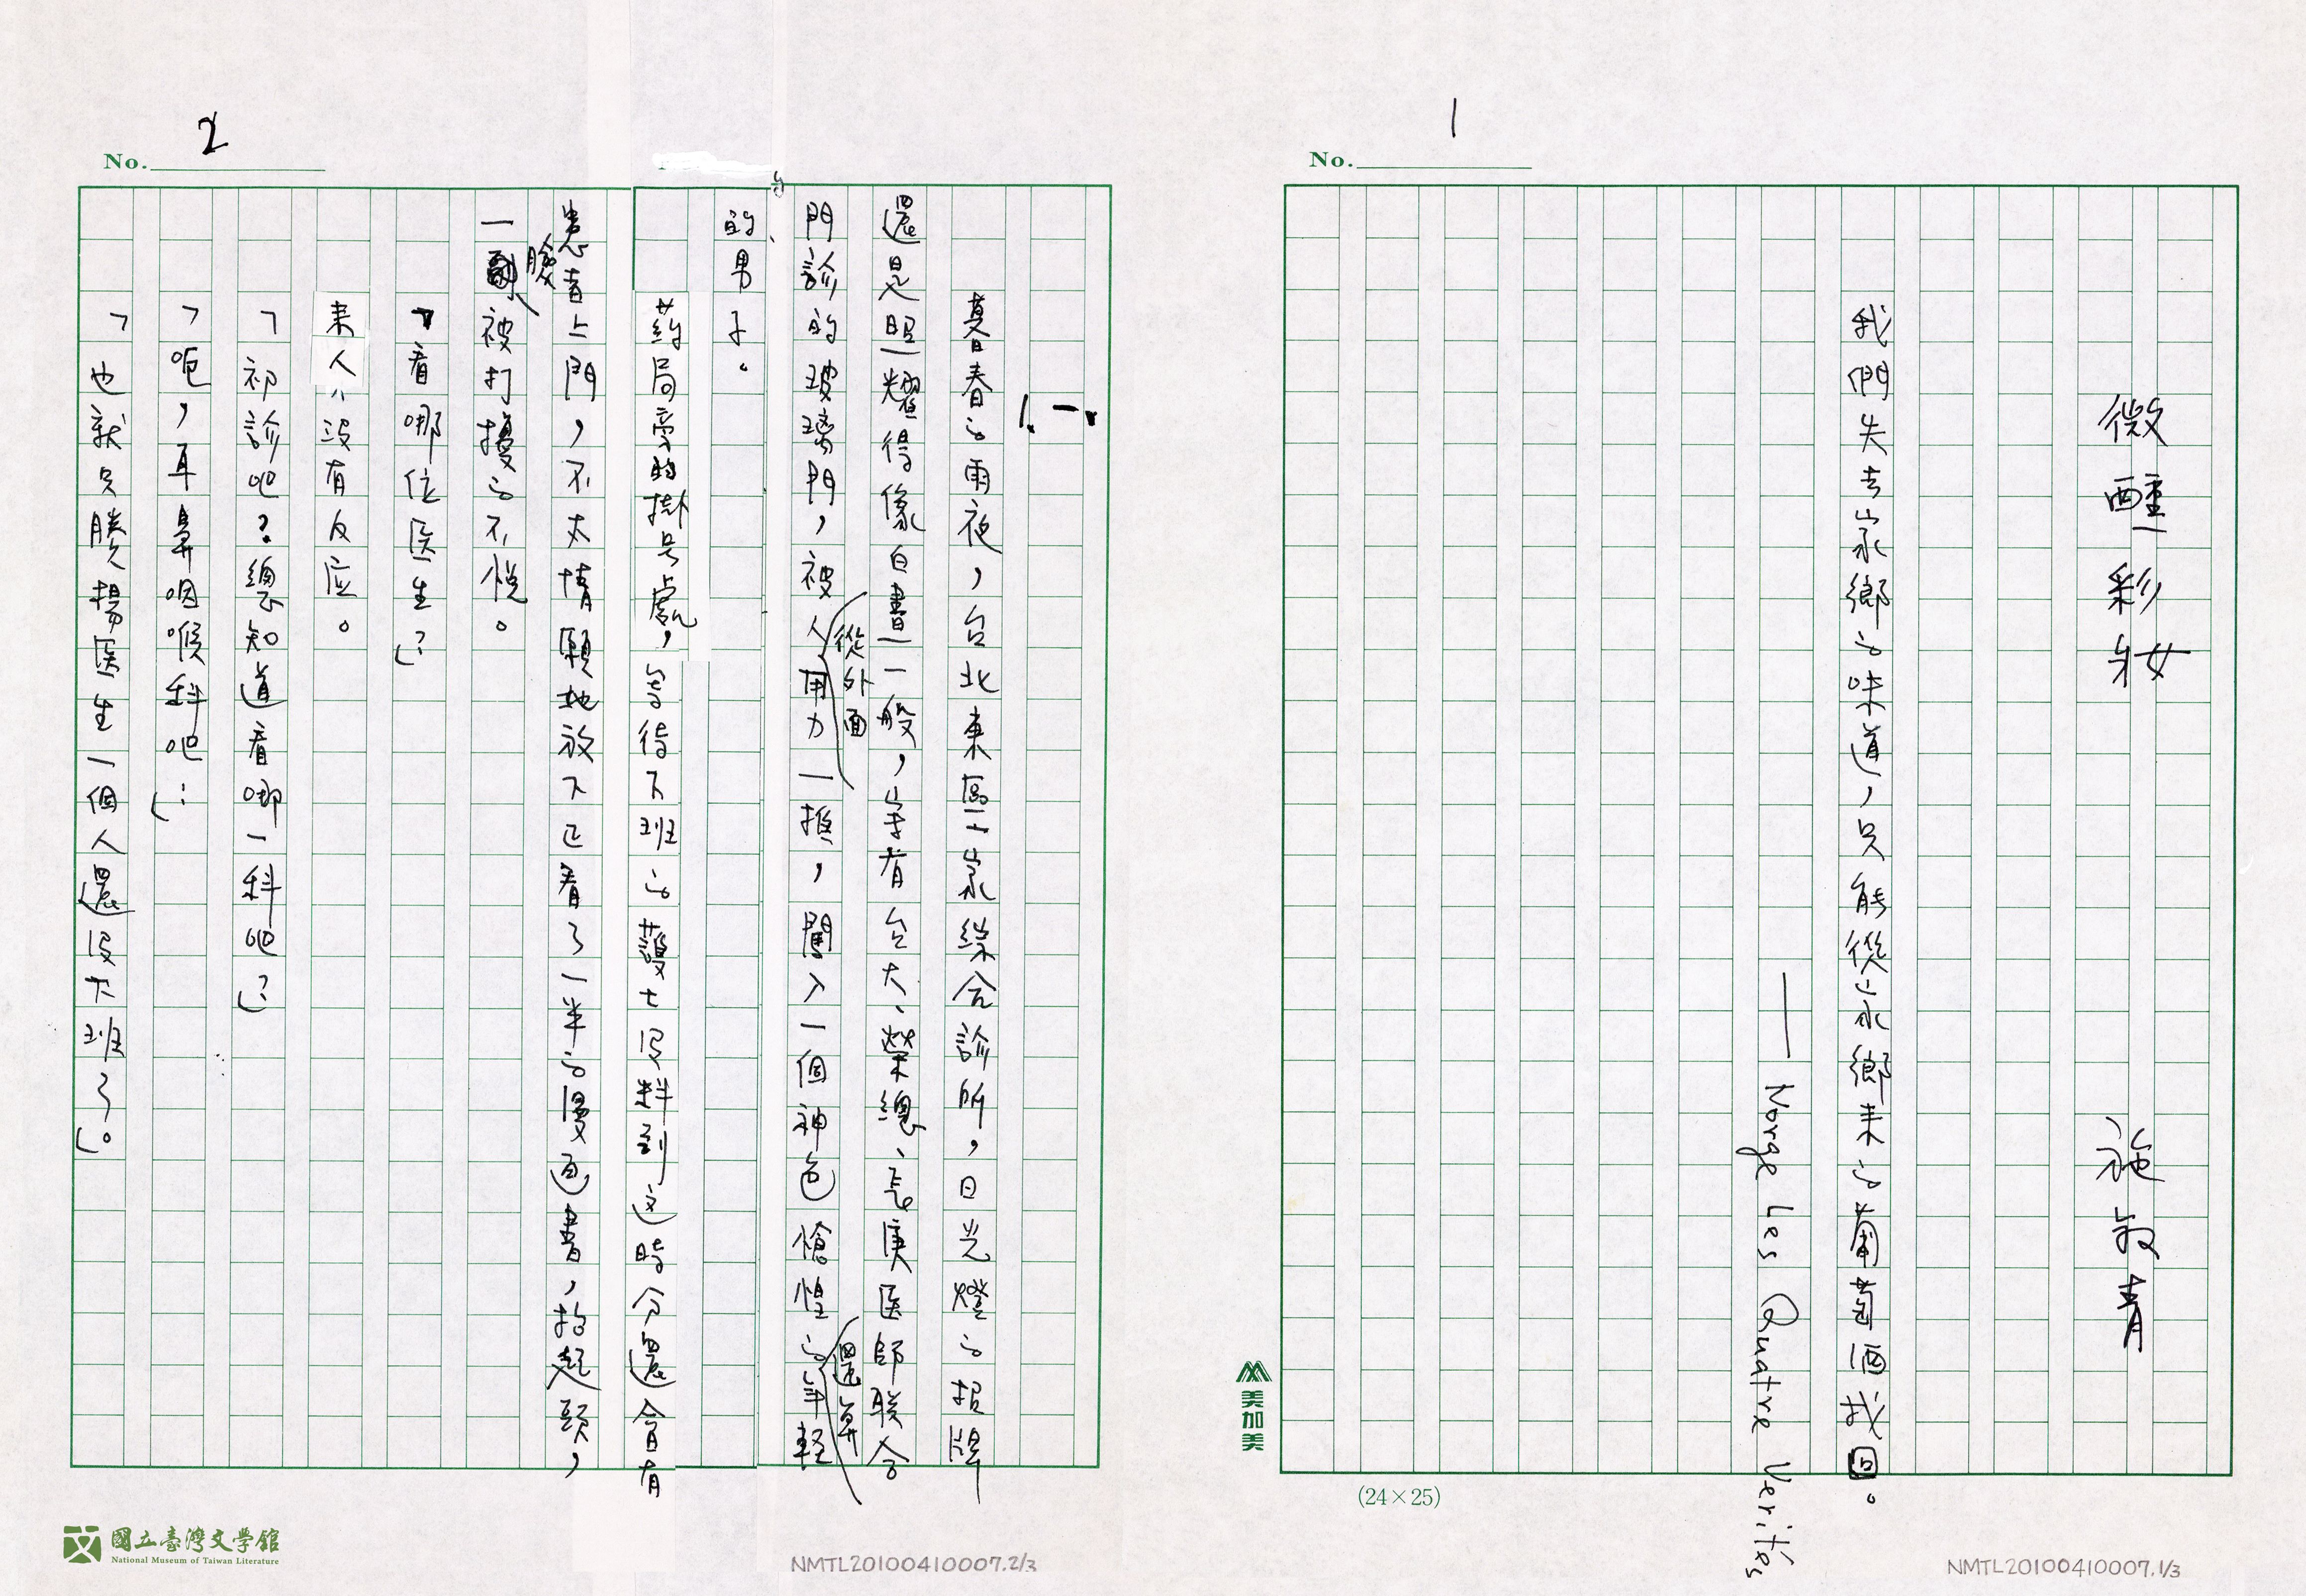 1
No.
微醺彩妝
施叔青
我們失去家鄉的味道，只能從家鄉來的葡萄酒找回。
——Norge Les Quatre Verités
美加美
(24×25)
NMTL20100410007.1/3
2
No.
1.一、
暮春的雨夜，台北東區一家綜合診所，日光燈的招牌
還是照耀得像白晝一般，寫有台大、榮總、長庚医師联合
門診的玻璃門，被人從外面用力一推，闖入一個神色愴惶的還算年輕
的男子。
葯局旁的掛号處，等待下班的護士沒料到这時分還會有
患者上門，不太情願地放下已看了一半的漫画書，抬起頭，
一臉被打擾的不悅。
「看哪位医生？」
来人沒有反应。
「初診吧？總知道看哪一科吧？」
「呃，耳鼻咽喉科吧…」
「也就只賸楊医生一個人還沒下班了。」
國立臺灣文學館
National Museum of Taiwan Literature
NMTL20100410007.2/3